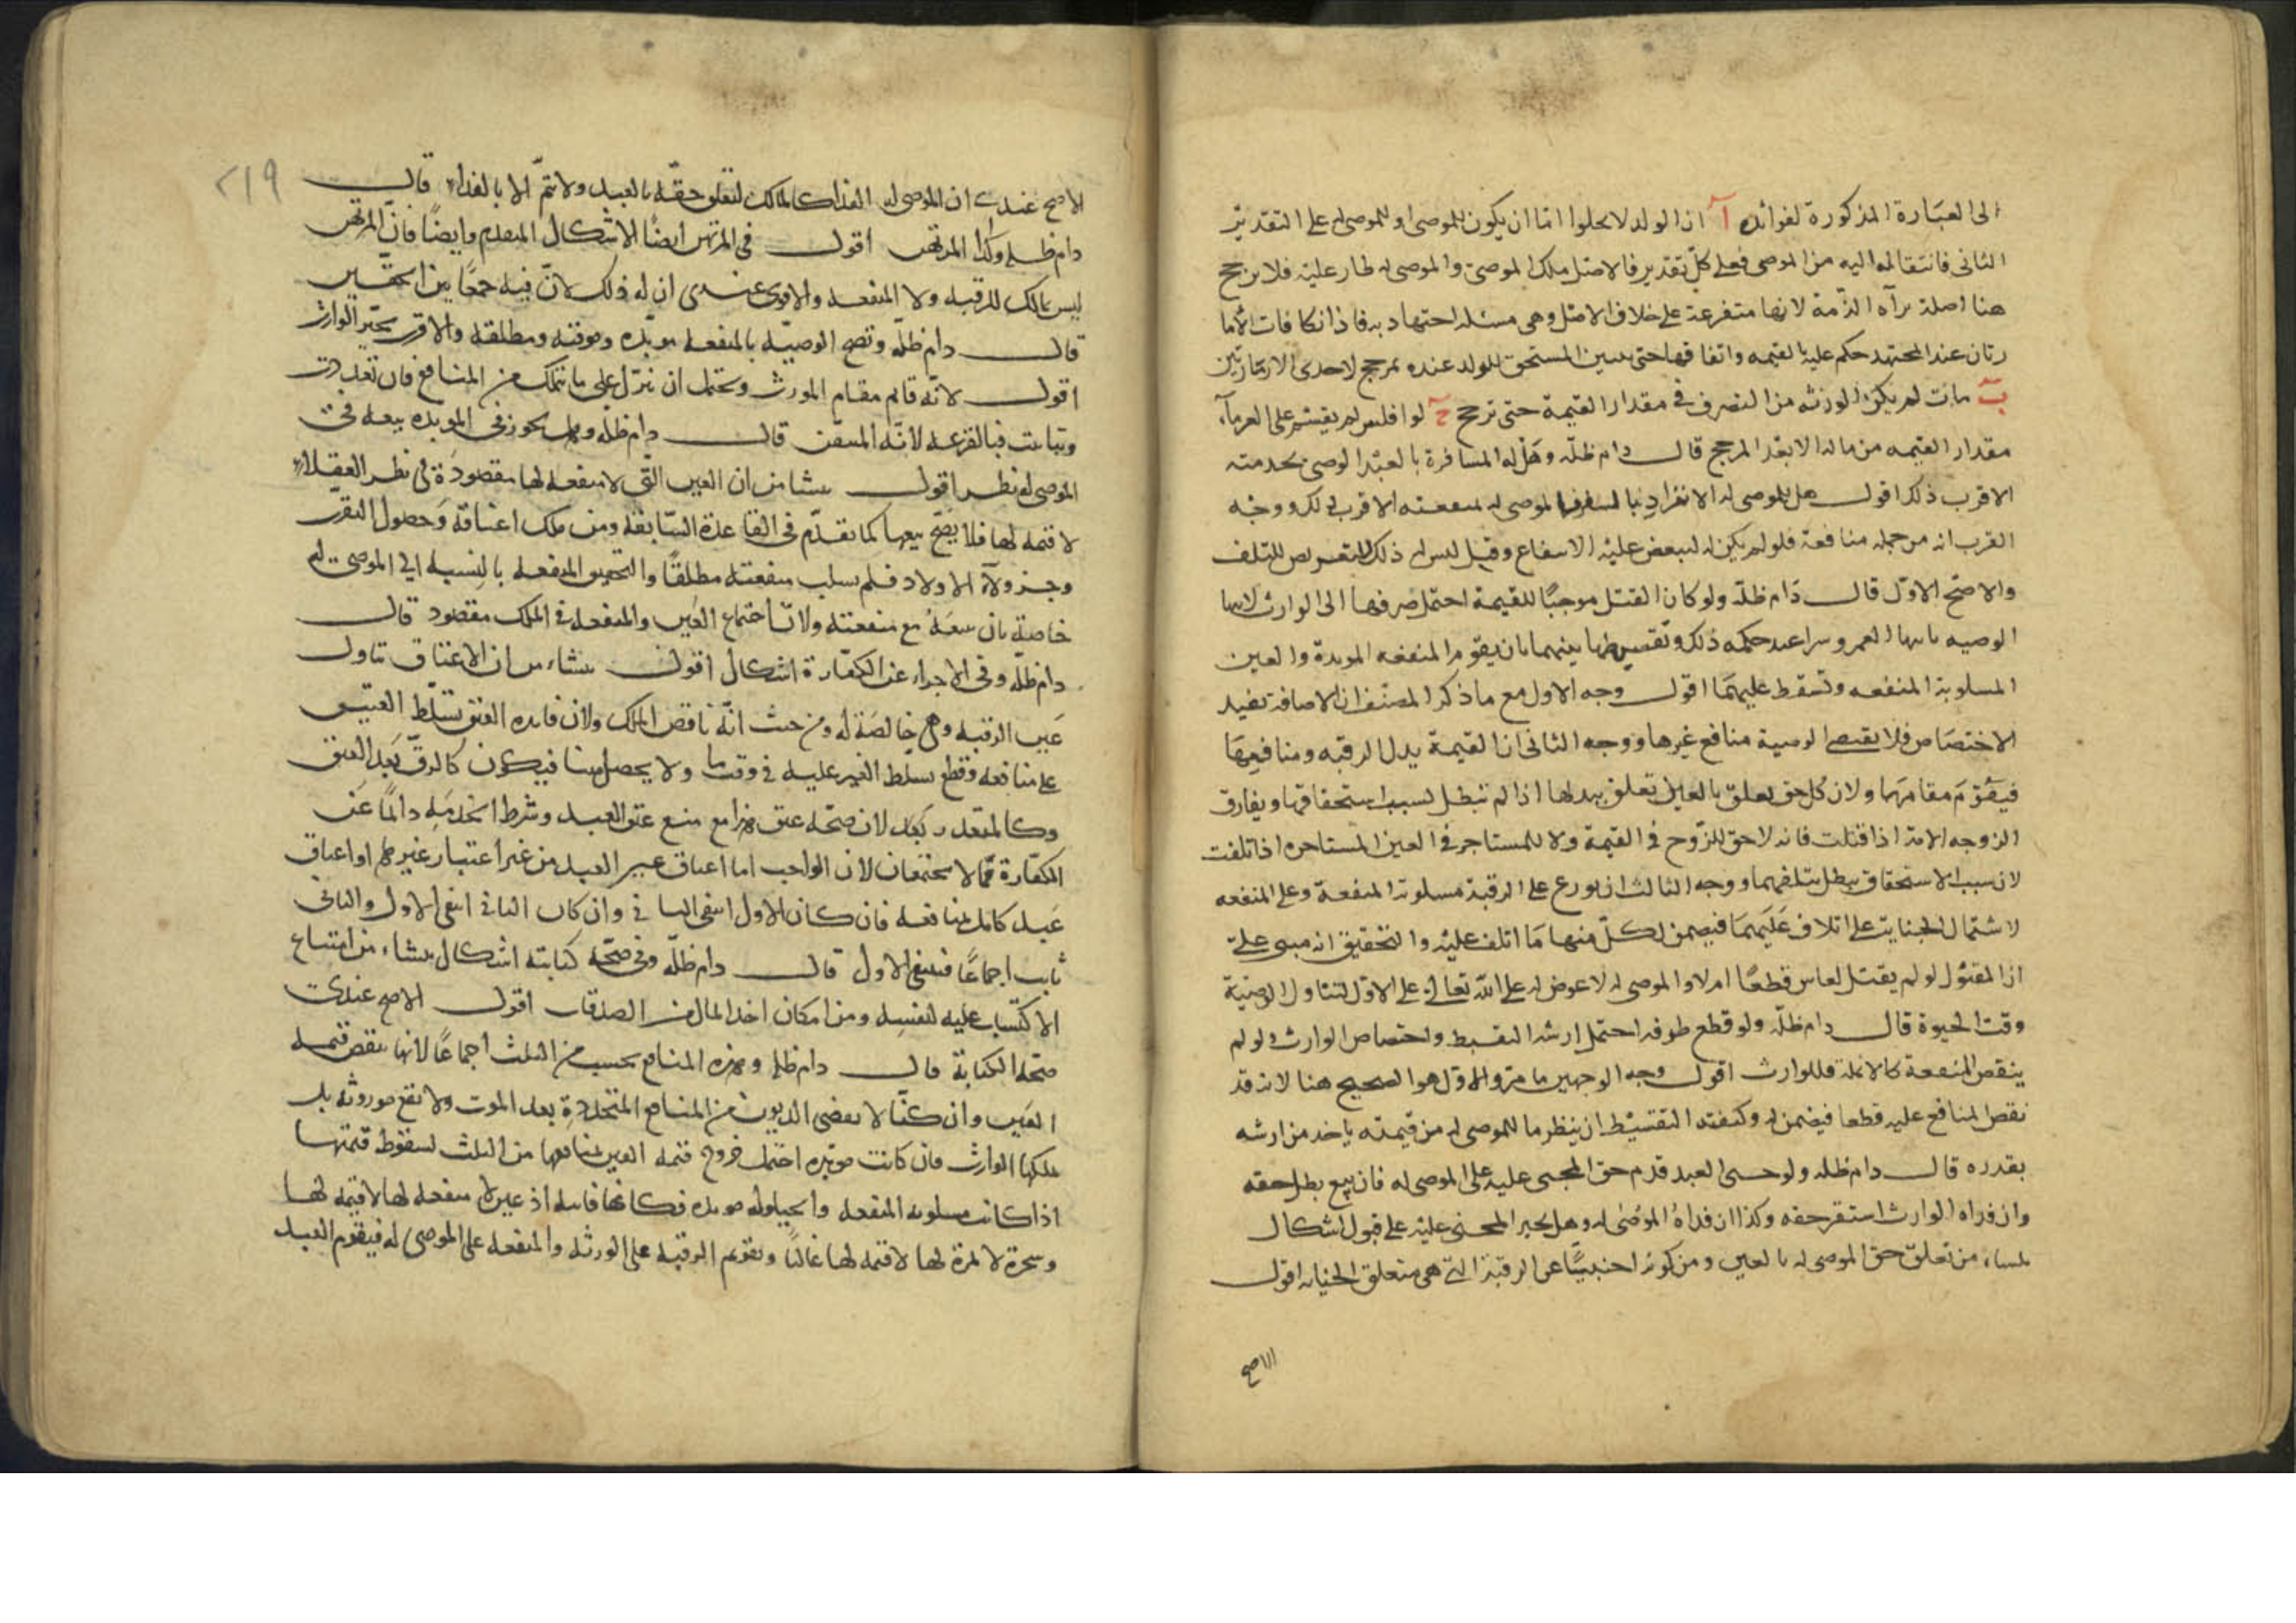 الى العبارة المذكورة لفوائد آ ان الولد لا يخلوا اما ان يكون للموصى او للموصى له على التقدير
الثانى فانتقاله اليه من الموصى فعلى كل تقدير فالاصل ملك الموصى والموصى له طار عليه فلا يرجح
هنا اصلة براه الذمة لانها متفرعة على خلاف الاصل وهى مسئله اجتهاديه فاذا تكافات الاما
رتان عند المجتهد حكم عليه بالقيمه واتفاقهما حتى المستحق للولد عنده بمرجح لاحدى الامارتين
ب مات لم يكن للورثه من التصرف فى مقدار القيمة حتى ترجح ج لو افلس لم يقسم على الغرماء
مقدار القيمه من ماله الا بعد المرجح قال دام ظله وهل له المسافرة بالعبد الموصى بخدمته
الاقرب ذلك اقول هل للموصى له الانفراد بالسفر الموصى له بمنفعته الاقرب ذلك ووجه
القرب انه من جمله منافعه فلو لم يكن له لبعض عليه الانتفاع وقيل ليس له ذلك للتلف
والاصح الاول قال دام ظله ولو كان القتل موجبا للقيمة احتمل صرفها الى الوارث
الوصيه العمر حكمه ذلك وتقسيطها بينهما بان يقوم المنفعه الموبدة والعين
المسلوبة المنفعه وتسقط عليهما اقول وجه الاول مع ما ذكر المصنف ان الاضافة تفيد
الاختصاص فلا الوصية منافع غيرها ووجه الثانى ان القيمة بدل الرقبه ومنافعها
فيقوم مقامهما ولان كل حق تعلق بالعين تعلق ببدلها اذا لم تبطل لسبب استحقاقها ويفارق
الزوجه الامة اذا قتلت فانه لا حق للزوج فى القيمة ولا للمستاجر فى العين المستاجره اذا تلفت
لان سبب الاستحقاق يبطل بتلفهما ووجه الثالث ان يوزع على الرقبة مسلوبة المنفعة وعلى المنفعه
لاشتمال الجناية على اتلاف عليهما فيضمن لكل منهما ما اتلف عليه والتحقيق انه مبنى على
ان المقتول لو لم يقتل لعاش قطعا ام لا والموصى له لا عوض له على الله تعالى على الاول لتناول الوصية
وقت الحيوة قال دام ظله ولو قطع طرفه احتمل ارشه التقسيط واختصاص الوارث ولو لم
ينقص المنفعة كالانمله فللوارث اقول وجه الوجهين ما مر والاول هو الصحيح هنا لانه قد
نقص المنافع عليه قطعا فيضمن له وكيفية التقسيط ان ينظر ما للموصى له من قيمته ياخذ من ارشه
بقدره قال دام ظله ولو جنى العبد قدم حق المجنى عليه على الموصى له فان بيع بطل حقه
وان فداه الوارث استقر حقه وكذا ان فداه الموصى له وهل يجبر المجنى عليه على قبول اشكال
ينشاء من تعلق حق الموصى له بالعين ومن كونه اجنبيا عن الرقبة التى هى متعلق الجنايه اقول
الاصح
٢١٩
الاصح عندى ان الموصى له الفدا كالمالك لتعلق حقه بالعبد ولا تتم الا بالفداء قال
دام ظله وكذا المرتهن اقول فى المرتهن ايضا الاشكال المتقدم وايضا فان المرتهن
ليس بمالك للرقبه ولا المنفعه والاقوى عندى ان له ذلك لان فيه جمعا بين الحقين
قال دام ظله وتصح الوصية بالمنفعه موبده وموقته ومطلقه والاقرب تخير الوارث
اقول لانه قايم مقام المورث ويحتمل ان ينزل على ما يتملك من المنافع فان تعددت
وتباينت فبالقرعه لانه المتيقن قال دام ظله وهل يجوز فى الموبده بيعه فى
الموصى له نظر اقول ينشا من ان العين التى لا منفعه لها مقصودة فى نظر العقلاء
لا قيمه لها فلا يصح بيعها كما تقدم فى القاعدة السابقه ومن ملك اعتاقه وحصول التقرب
وجر ولاء الاولاد فلم يسلب منفعته مطلقا والتحقيق المنفعه بالنسبه الى الموصى له
خاصة بان بيعه مع منفعته ولان اجتماع العين والمنفعه فى الملك مقصود قال
دام ظله وفى الاجزاء عن الكفارة اشكال اقول ينشاء من ان الاعتاق تناول
عين الرقبه وهى خالصة له ومن حيث انه ناقص الملك ولان فايده العتق تسلط العتيق
على منافعه وقطع تسلط الغير عليه فى وقت ما ولا يحصل هنا فيكون كالرق بعد العتق
وكالمتعدد بعد لان صحة عتق هذا مع منع عتق العبد وشرط الخدمه دائما عن
الكفارة مما لا يجتمعان لان الواجب اما اعتاق عين العبد من غير اعتبار غيرها او اعتاق
عبد كامل بمنافعه فان كان الاول انتفى الثانى وان كان الثانى انتفى الاول والثانى
ثابت اجماعا فينتفى الاول قال دام ظله وفى صحة كتابته اشكال ينشاء من امتناع
الاكتساب عليه لنفسه ومن امكان اخذ المال من الصدقات اقول الاصح عندى
صحة الكتابة قال دام ظله وهذه المنافع تحسب من الثلث اجماعا لانها تنقص قيمه
العين وان كنا لا نقضى الديون من المنافع المتجددة بعد الموت ولا تقع موروثه بل
يملكها الوارث فان كانت موبده احتمل خروج قيمه العين بمنافعها من الثلث لسقوط قيمتها
اذا كانت مسلوبه المنفعه والحيلوله موبده فكانها فايته اذ عين لا منفعه لها لا قيمه لها
وشجرة لا ثمرة لها لا قيمه لها غالبا وتقويم الرقبه على الورثه والمنفعه على الموصى له فيقوم العبد